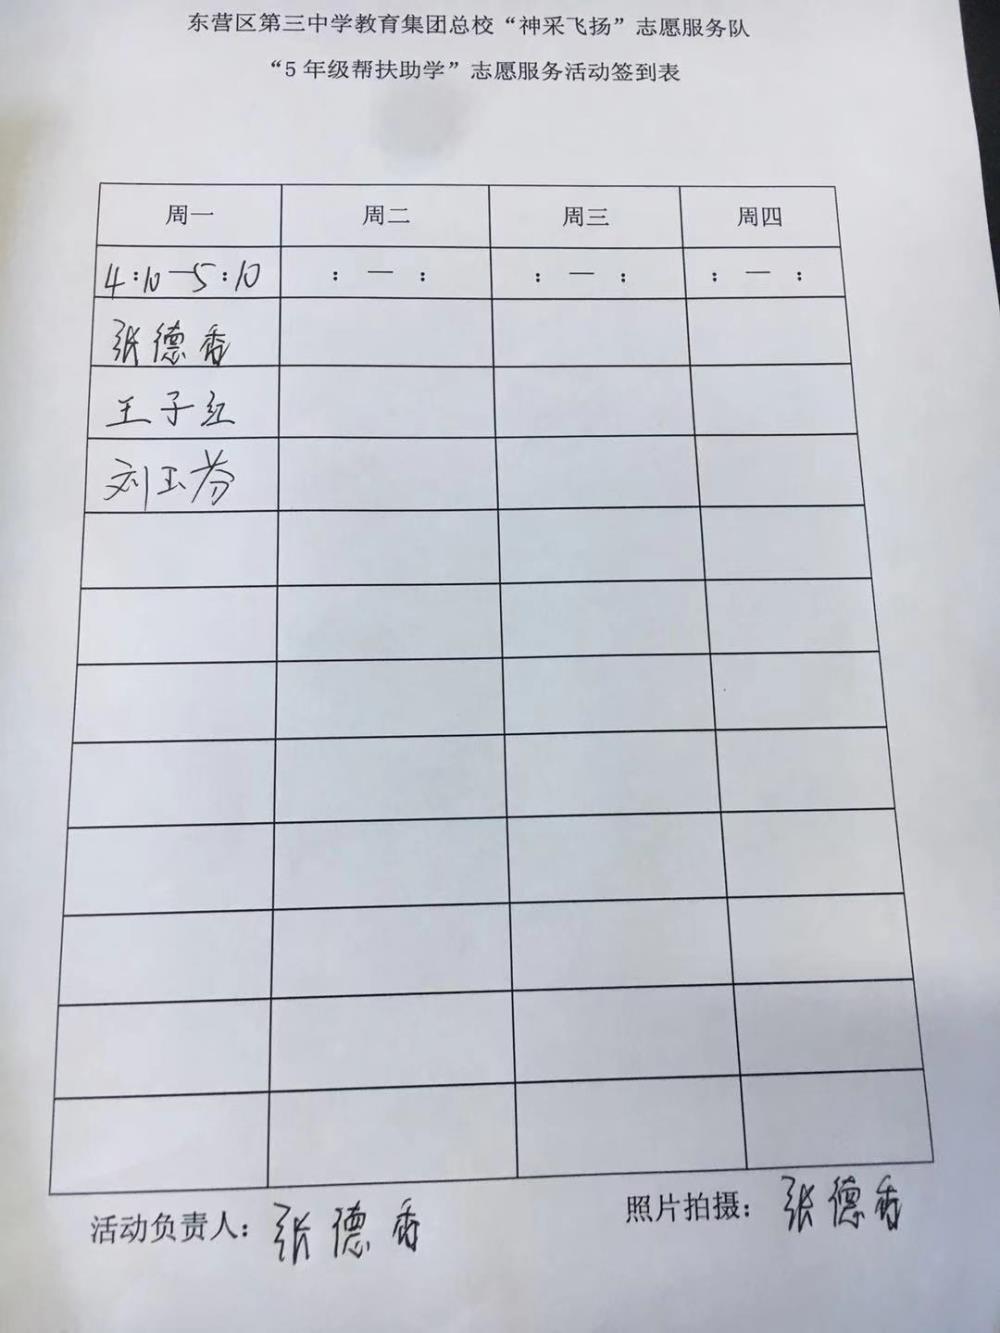 东营区第三中学教育集团总校“神采飞扬”志愿服务队
“5年级帮扶助学”志愿服务活动签到表
周一 周二 周三 周四
4:10—5:10 : — : : — : : — :
张德香
王子红
刘玉芬
活动负责人：张德香 照片拍摄：张德香